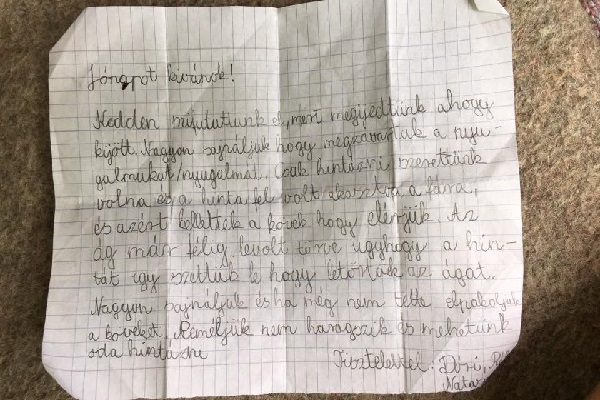 Jónapot kivánok!
Kedden elfutottunk, mert megijedtünk ahogy
kijött. Nagyon sajnáljuk hogy megzavartuk a nyu-
galmukat/nyugalmát. Csak hintázni szerettünk
volna és a hinta fel volt akasztva a fára,
és azért kellettek a kövek hogy elérjük. Az
ág már félig levolt törve úgyhogy a hin-
tát úgy szettük le hogy letörtük az ágat.
Nagyon sajnáljuk és ha még nem tette elpakoljuk
a köveket. Reméljük nem haragszik és mehetünk
oda hintázni
Tisztelettel: Dóri,